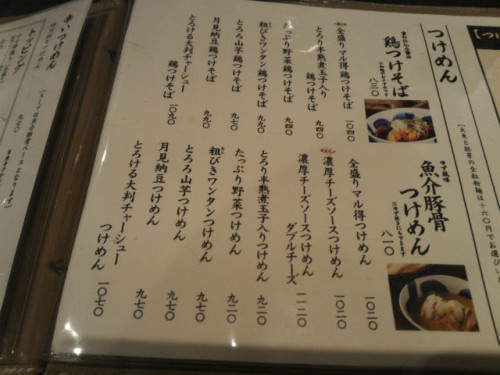 つけめん
鶏つけそば
八三〇
全盛りマル得鶏つけそば 一〇四〇
とろり半熟煮玉子入り鶏つけそば 九四〇
たっぷり野菜鶏つけそば 九四〇
粗びきワンタン鶏つけそば 九九〇
とろろ山芋鶏つけそば 九七〇
月見納豆鶏つけそば 九九〇
とろける大判チャーシュー鶏つけそば 一〇九〇
魚介豚骨つけめん
八一〇
全盛りマル得つけめん 一〇二〇
濃厚チーズソースつけめん 一〇二〇
濃厚チーズソースつけめんダブルチーズ 一一二〇
とろり半熟煮玉子入りつけめん 九二〇
たっぷり野菜つけめん 九二〇
粗びきワンタンつけめん 九七〇
とろろ山芋つけめん 九七〇
月見納豆つけめん 九七〇
とろける大判チャーシューつけめん 一〇七〇
辛いつけめん
トッピング